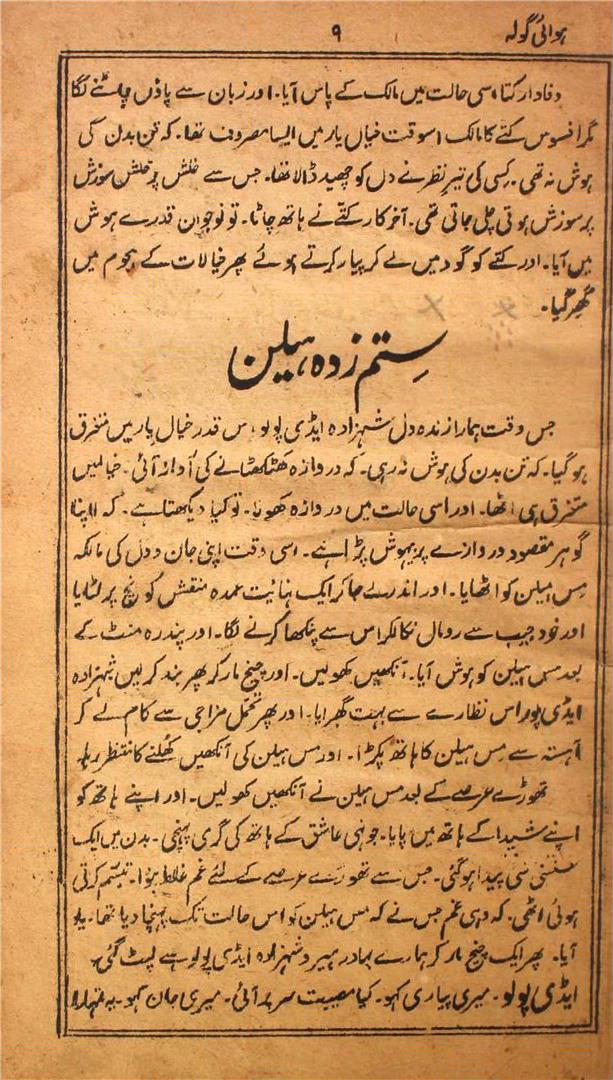 ہوائی گولہ
۹
وفادار کتا اسی حالت میں مالک کے پاس آیا۔ اور زبان سے پاؤں چاٹنے لگا
مگر افسوس کتے کا مالک اسوقت خیال یار میں ایسا مصروف تھا۔ کہ تن بدن کی
ہوش نہ تھی۔ کسی کی تیر نظر نے دل کو چھید ڈالا تھا۔ جس سے خلش پر خلش سوزش
پر سوزش ہوتی چلی جاتی تھی۔ آخر کار کتے نے ہاتھ چاٹا۔ تو نوجوان قدرے ہوش
میں آیا۔ اور کتے کو گود میں لے کر پیار کرتے ہوئے پھر خیالات کے ہجوم میں
گھر گیا۔
ستم زدہ ہیلن
جس وقت ہمارا زندہ دل شہزادہ ایڈی پولو اس قدر خیال یار میں متغرق
ہو گیا۔ کہ تن بدن کی ہوش نہ رہی۔ کہ دروازہ کھٹکھٹانے کی آواز آئی۔ خیالیں
متغرق ہی اٹھا۔ اور اسی حالت میں دروازہ کھولا۔ تو کیا دیکھتا ہے۔ کہ اپنا
گوہر مقصود دروازے پر بیہوش پڑا ہے۔ اسی وقت اپنی جان و دل کی مالکہ
مس ہیلن کو اٹھایا۔ اور اندر لے جا کر ایک نہایت عمدہ منقش کوچ پر لٹایا
اور خود جیب سے رومال نکالکر اس سے پنکھا کرنے لگا۔ اور پندرہ منٹ کے
بعد مس ہیلن کو ہوش آیا۔ آنکھیں کھولیں۔ اور چیخ مار کر پھر بند کر لیں شہزادہ
ایڈی پولو اس نظارے سے بہت گھبرایا۔ اور پھر تحمل مزاجی سے کام لے کر
آہستہ سے مس ہیلن کا ہاتھ پکڑا۔ اور مس ہیلن کی آنکھیں کھلنے کا منتظر رہا۔
تھوڑے عرصے کے بعد مس ہیلن نے آنکھیں کھولیں۔ اور اپنے ہاتھ کو
اپنے شیدا کے ہاتھ میں پایا۔ جونہی عاشق کے ہاتھ کی گرمی پہنچی۔ بدن میں ایک
سنسنی سی پیدا ہو گئی۔ جس سے تھوڑے عرصے کے لئے غم غلط ہوا۔ تبسم کرتی
ہوئی اٹھی۔ کہ وہی غم جس نے کہ مس ہیلن کو اس حالت تک پہنچا دیا تھا۔ یاد
آیا۔ پھر ایک چیخ مار کر ہمارے بہادر ہیرو شہزادہ ایڈی پولو سے لپٹ گئی۔
ایڈی پولو۔ میری پیاری کہو۔ کیا مصیبت سر پر آئی۔ میری جان کہو۔ یہ تمہارا